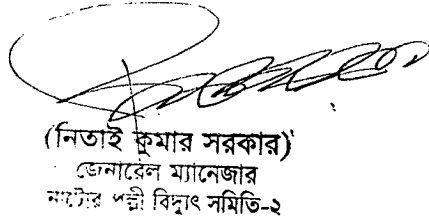 (নিতাই কুমার সরকার)
জেনারেল ম্যানেজার
নাটোর পল্লী বিদ্যুৎ সমিতি-২